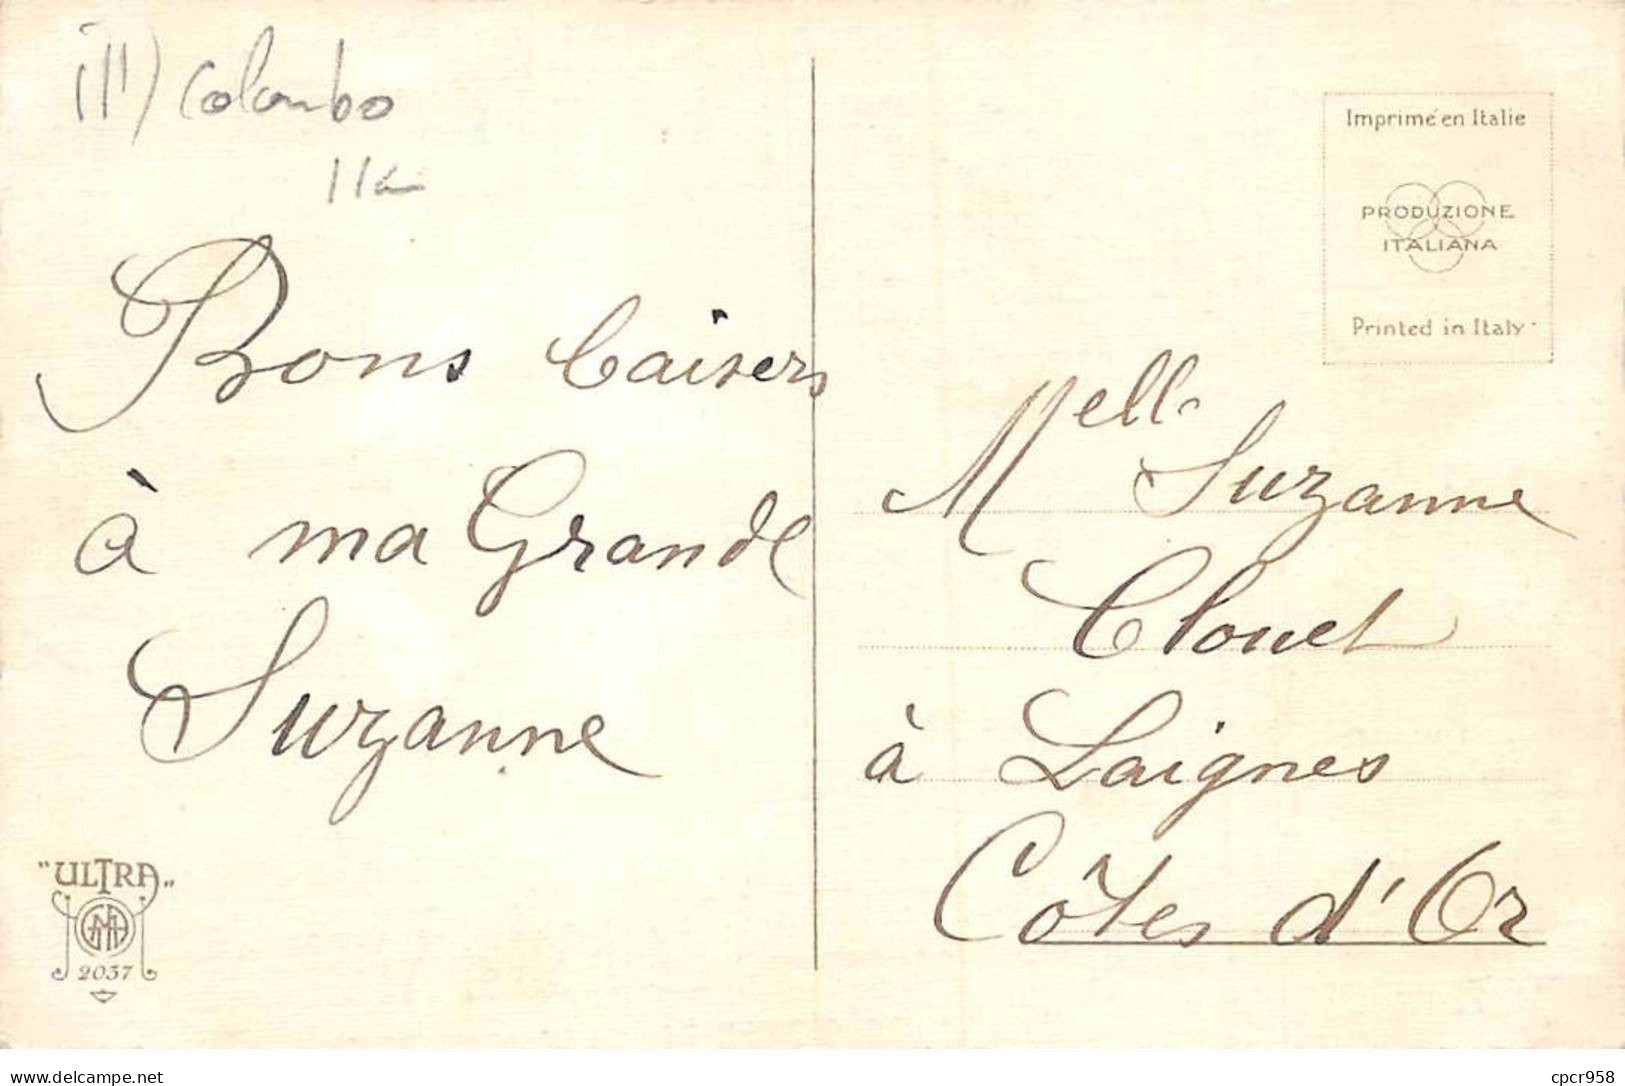 ill) Colombo
Bons baisers
à ma Grande
Suzanne
"ULTRA"
2037
Imprimé en Italie
PRODUZIONE
ITALIANA
Printed in Italy
Melle Suzanne
Clouet
à Laignes
Côtes d'Or
delcampe.net
cpcr958